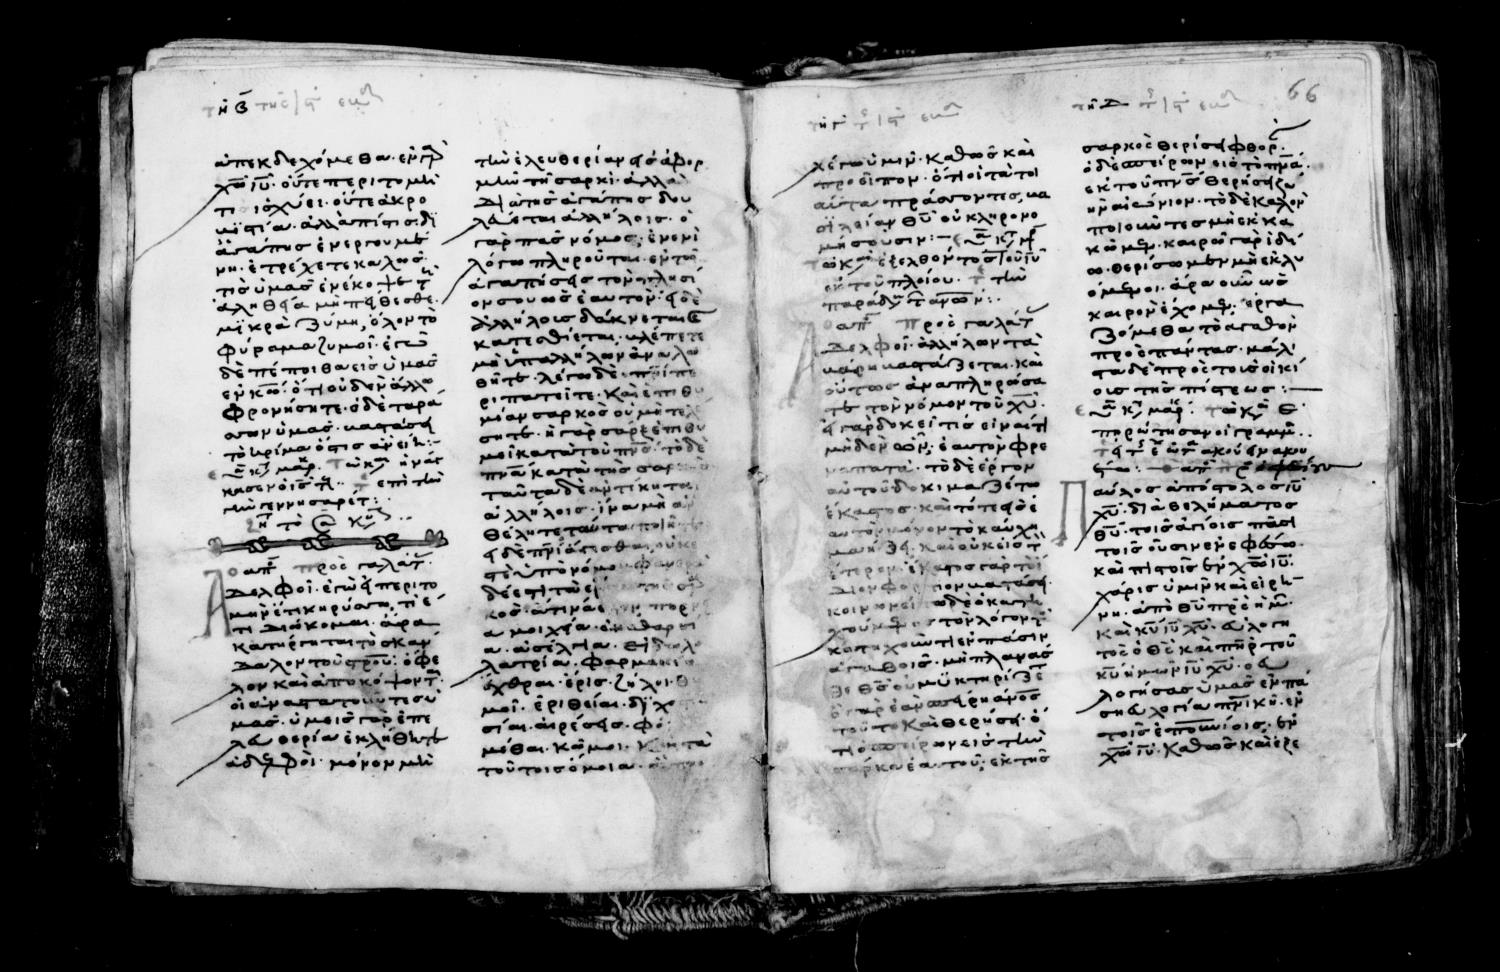 ἀπεκδεχόμεθα· ἐν γὰρ
χω ιυ· οὔτε περιτομή
τι ἰσχύει· οὔτε ἀκρο
βυστία· ἀλλὰ πίστις δι'
ἀγάπης ἐνεργουμέ
νη· ἐτρέχετε καλῶς·
τίς ὑμᾶς ἐνέκοψε τ
ἀληθεία μὴ πείθεσθε·
μικρὰ ζύμη, ὅλον τὸ
φύραμα ζυμοῖ· ἐγὼ
δὲ πέποιθα εἰς ὑμᾶς
ἐν κω· ὅτι οὐδὲν ἄλλο
φρονήσητε· ὁ δὲ ταρά
σων ὑμᾶς· βαστάσει
τὸ κρίμα ὅστις ἂν εἴη:
πρὸς γαλάτ
δελφοί· ἐγὼ εἰ περιτο
μὴν ἔτι κηρύσσω, τί ἔ
τι διώκομαι· ἄρα
κατήργηται τὸ σκάν
δαλον τοῦ σταυροῦ· ὄφε
λον καὶ ἀποκόψοντ
οἱ ἀναστατοῦντες ὑ
μᾶς· ὑμεῖς γὰρ ἐπ'ἐ
λευθερία ἐκλήθητε
ἀδελφοί· μόνον μὴ
τὴν ἐλευθερίαν εἰς ἀφορ
μὴν τῆ σαρκί· ἀλλὰ
διὰ τῆς ἀγάπης δου
λεύεται ἀλλήλοις· ὁ
γὰρ πᾶς νόμος, ἐν ἑνὶ
λόγω πληροῦται· ἐν τῶ
ἀγαπήσεις τὸν πλησί
ον σου ὡς ἑαυτόν· εἰ δὲ
ἀλλήλοις δάκνεται
κατεσθίεται· βλέπετε
μὴ ὑπ' ἀλλήλων ἀναλω
θῆτε· λέγω δὲ· πνι πε
ριπατεῖτε· καὶ ἐπιθυ
μίαν σαρκὸς οὐ μὴ τελέ
σητε· ἡ γὰρ σὰρξ ἐπιθυ
μεῖ κατὰ τοῦ πνς· τὸ δὲ
πνα κατὰ τῆς σαρκός
ταῦτα δὲ ἀντίκειται
ἀλλήλοις· ἵνα μὴ ἃ ἂν
θέλητε ταῦτα ποιῆτε
εἰ δὲ πνι ἄγεσθαι, οὐκ ἐ
στὲ ὑπὸ νόμον· φανερὰ
δέ ἐστι τὰ ἔργα τῆς σαρ
κός· ἅτινά ἐστιν πορνεί
α μοιχεία· ἀκαθαρσί
α· ἀσέλγεια· εἰδωλο
λατρία· φαρμακεία
ἔχθραι· ἔρις· ζῆλοι· θυ
μοί· ἐριθεῖαι· διχο
σίαι· αἱρέσεις· φθό
μέθαι· κῶμοι· καὶ τὰ
τούτοις ὅμοια· ἃ προ
λέγω ὑμῖν· καθὼς καὶ
προεῖπον· ὅτι οἱ τὰ τοι
αῦτα πράσσοντες, βα
σιλείαν θυ οὐ κληρονο
μήσουσιν:
τῶ καιρῶ ἐξελθόντος τοῦ ιυ
ἐκ τοῦ πλοίου·
πρὸς γαλάτ
δελφοί· ἀλλήλων τὰ
βάρη βαστάζεται· καὶ
οὕτως ἀναπληρώσα
τε τὸν νόμον τοῦ χυ·
εἰ γὰρ δοκεῖ τις εἶναί τι
μηδὲν ὤν, ἑαυτὸν φρε
ναπατᾶ· τὸ δὲ ἔργον
αὐτοῦ δοκιμαζέτω
ἕκαστος· καὶ τότε εἰς ἑ
αυτὸν μόνον τὸ καύχη
μα ἕξει· καὶ οὐκ εἰς τ
ἕτερον· ἕκαστος γὰρ τὸ ἴ
διον φορτίον βαστάσει·
κοινωνείτω δὲ ὁ κατη
χούμενος τὸν λόγον τ
κατηχοῦντι ἐν πᾶσιν
ἀγαθοῖς· μὴ πλανᾶσ
θε θς οὐ μυκτηρίζετ
ὃ γὰρ ἐὰν σπείρη ανος
τοῦτο καὶ θερίσει· ὅ
τι ὁ σπείρων εἰς τὴν
σάρκα ἑαυτοῦ, ἐκ τῆς
σαρκὸς θερίσει φθορ
ὁ δὲ σπείρων εἰς τὸ πνα·
ἐκ τοῦ πνς θερίσει ζω
ὴν αἰώνιον· τὸ δὲ καλὸν
ποιοῦντες μὴ ἐκκα
κῶμεν· καιρῶ γὰρ ἰδί
ω θερίσωμεν μὴ ἐκλυ
όμενοι· ἄρα οὖν ὡς
καιρὸν ἔχομεν· ἐργα
ζόμεθα τὸ ἀγαθὸν
πρὸς πάντας· μάλι
στα δὲ πρὸς τοὺς οἰκεί
οις τῆς πίστεως:
αῦλος ἀπόστολος ιυ
χυ· διὰ θελήματος
θυ· τοῖς ἁγίοις πᾶσι
τοῖς οὖσιν ἐν ἐφέσω·
καὶ πιστοῖς ἐν χω ιυ·
χάρις ὑμῖν καὶ εἰρή
νη· ἀπὸ θυ πρς ἡμ·
καὶ κυ ιυ χυ· εὐλογη
τὸς ὁ θς καὶ πηρ τοῦ
κυ ἡμῶν ιυ χυ· ὁ εὐ
λογήσας ὑμᾶς ἐν πά
ση εὐλογία πνικῆ· ἐν
τοῖς ἐπουνίοις· ἐν
χω ιυ· καθὼς καὶ ἐξε
66